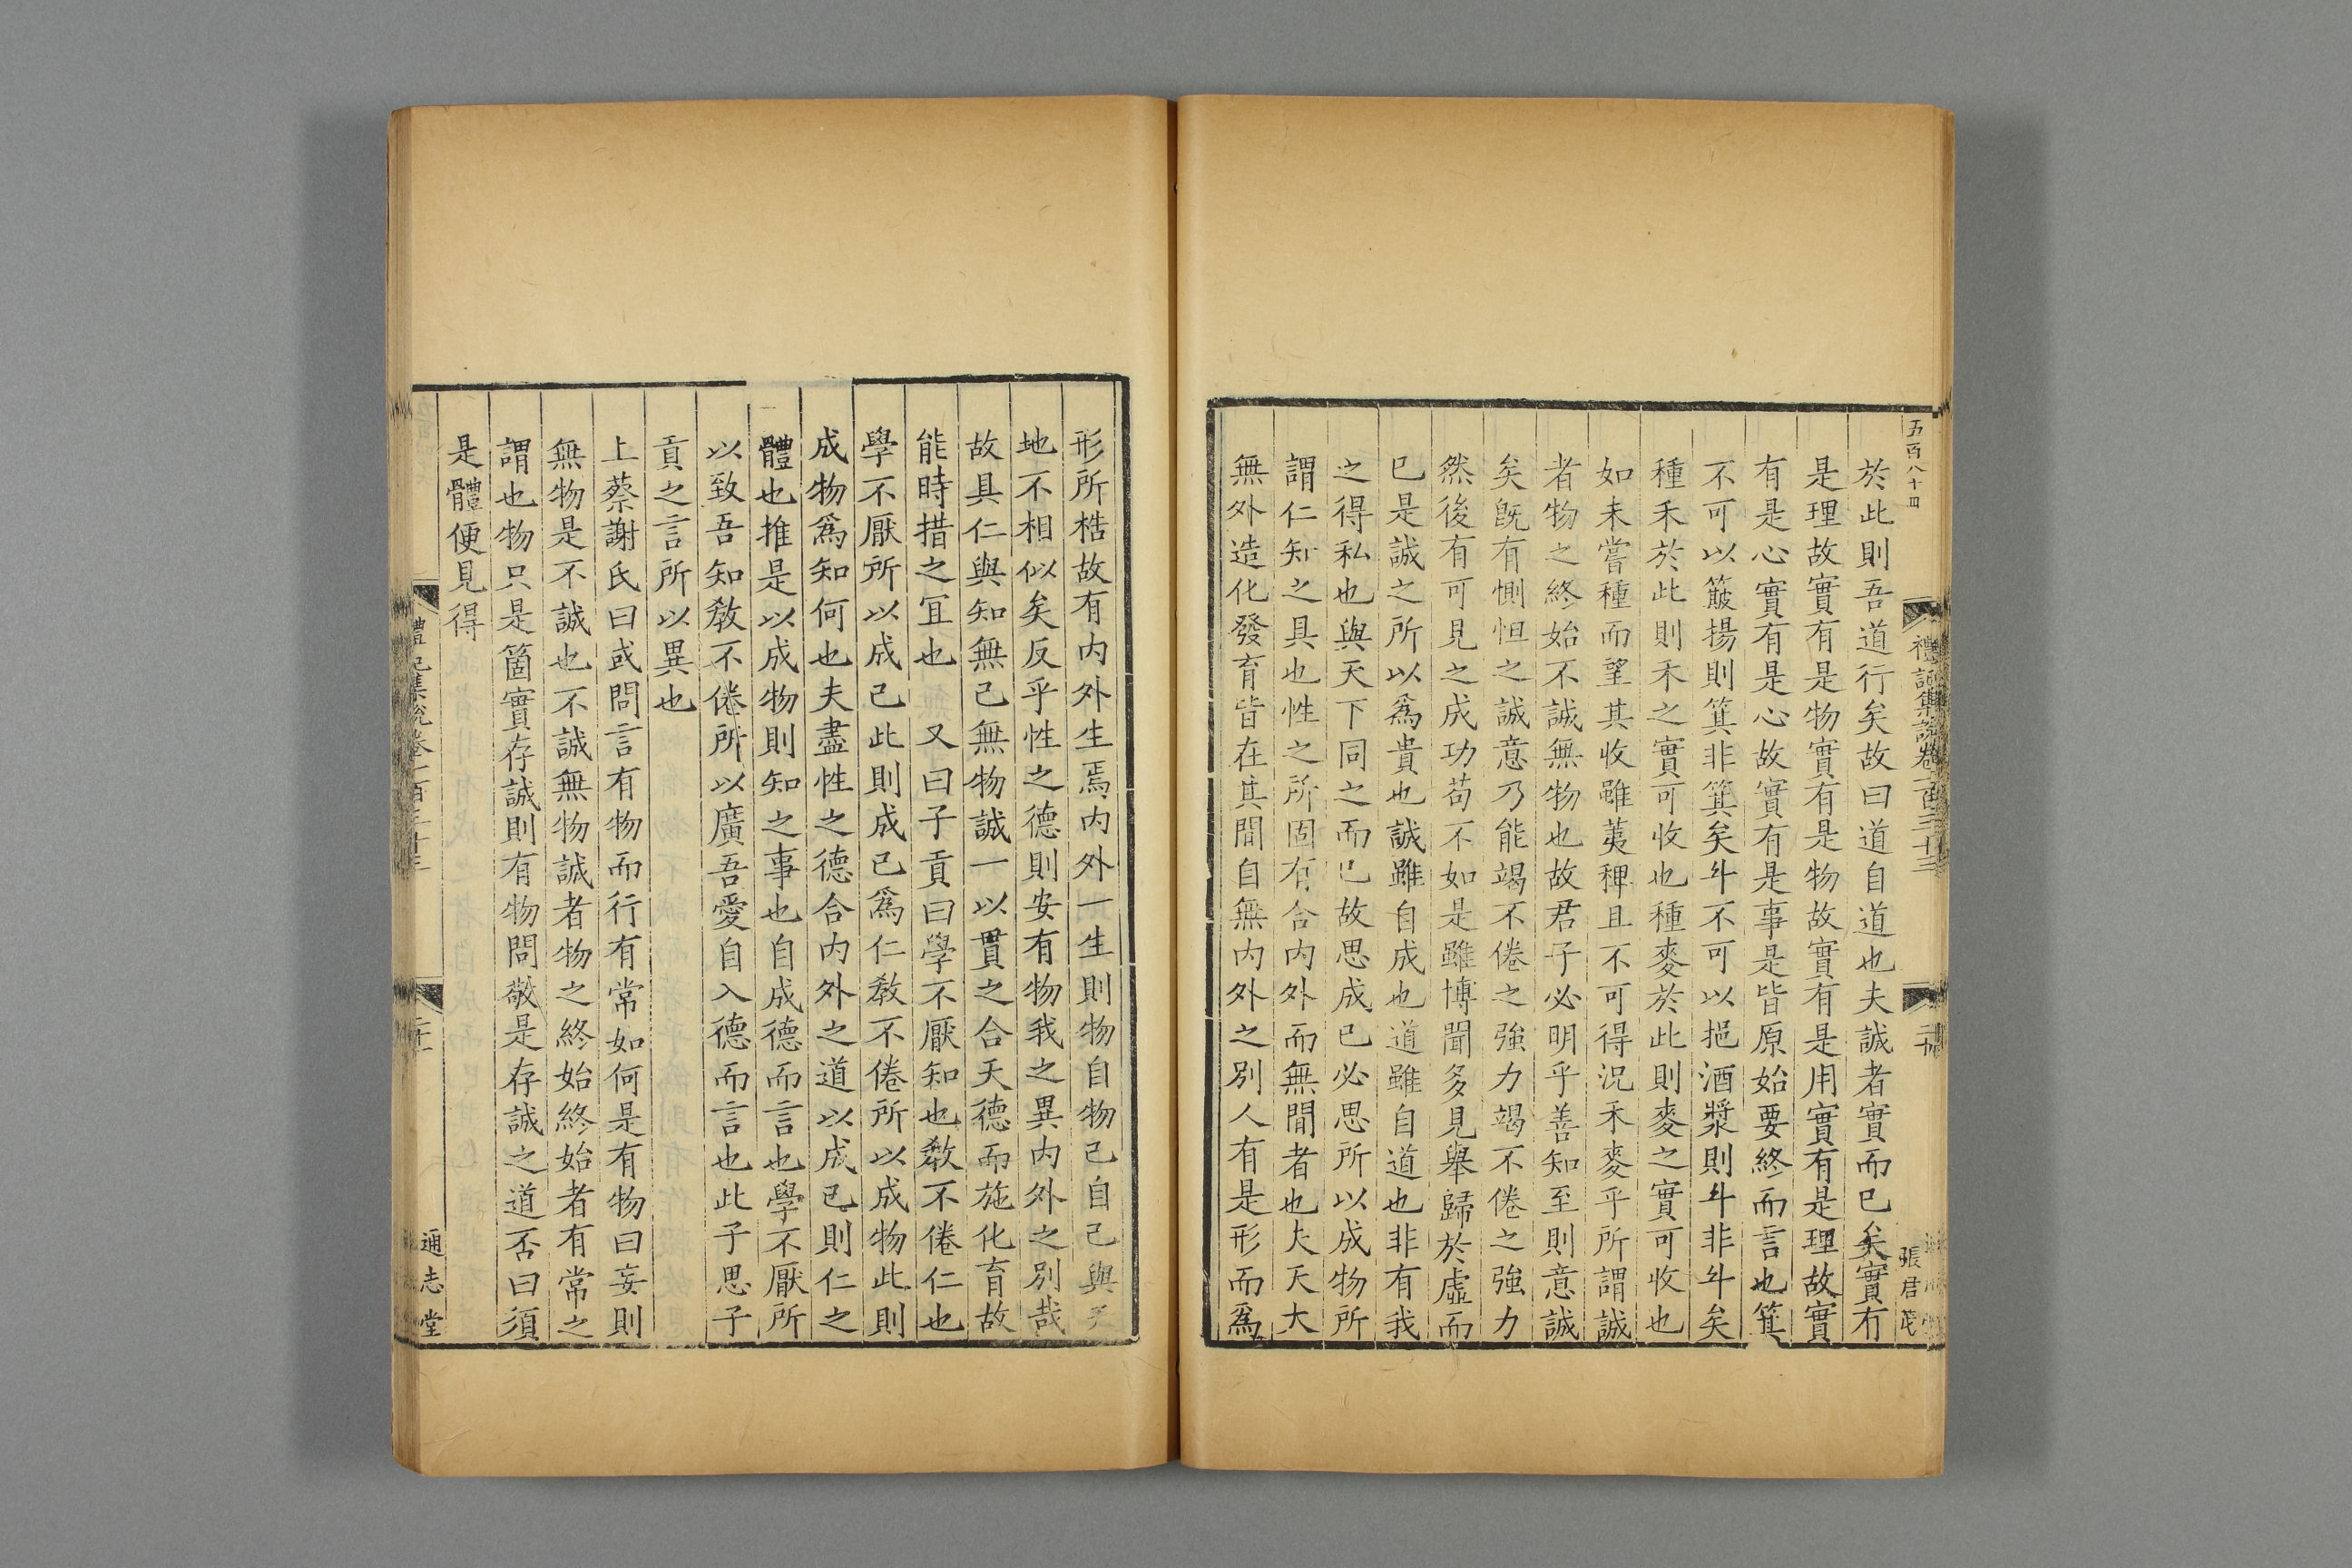 五百八十四
禮記集說卷一百三十三
張君茂
於此則吾道行矣故曰道自道也夫誠者實而已矣實有
是理故實有是物實有是物故實有是用實有是理故實
有是心實有是心故實有是事是皆原始要終而言也箕
不可以簸揚則箕非箕矣斗不可以挹酒漿則斗非斗矣
種禾於此則禾之實可收也種麥於此則麥之實可收也
如未嘗種而望其收雖荑稗且不可得況禾麥乎所謂誠
者物之終始不誠無物也故君子必明乎善知至則意誠
矣旣有惻怛之誠意乃能竭不倦之強力竭不倦之強力
然後有可見之成功苟不如是雖博聞多見舉歸於虛而
已是誠之所以爲貴也誠雖自成也道雖自道也非有我
之得私也與天下同之而已故思成已必思所以成物所
謂仁知之具也性之所固有合內外而無閒者也夫天大
無外造化發育皆在其閒自無內外之別人有是形而爲
形所梏故有內外生焉內外一生則物自物己自己與天
地不相似矣反乎性之德則安有物我之異內外之別哉
故具仁與知無己無物誠一以貫之合天德而施化育故
能時措之宜也 又曰子貢曰學不厭知也敎不倦仁也
學不厭所以成己此則成己爲仁敎不倦所以成物此則
成物爲知何也夫盡性之德合內外之道以成己則仁之
體也推是以成物則知之事也自成德而言也學不厭所
以致吾知敎不倦所以廣吾愛自入德而言也此子思子
貢之言所以異也
上蔡謝氏曰或問言有物而行有常如何是有物曰妄則
無物是不誠也不誠無物誠者物之終始終始者有常之
謂也物只是箇實存誠則有物問敬是存誠之道否曰須
是體便見得
禮記集說卷一百三十三
二十一
通志堂